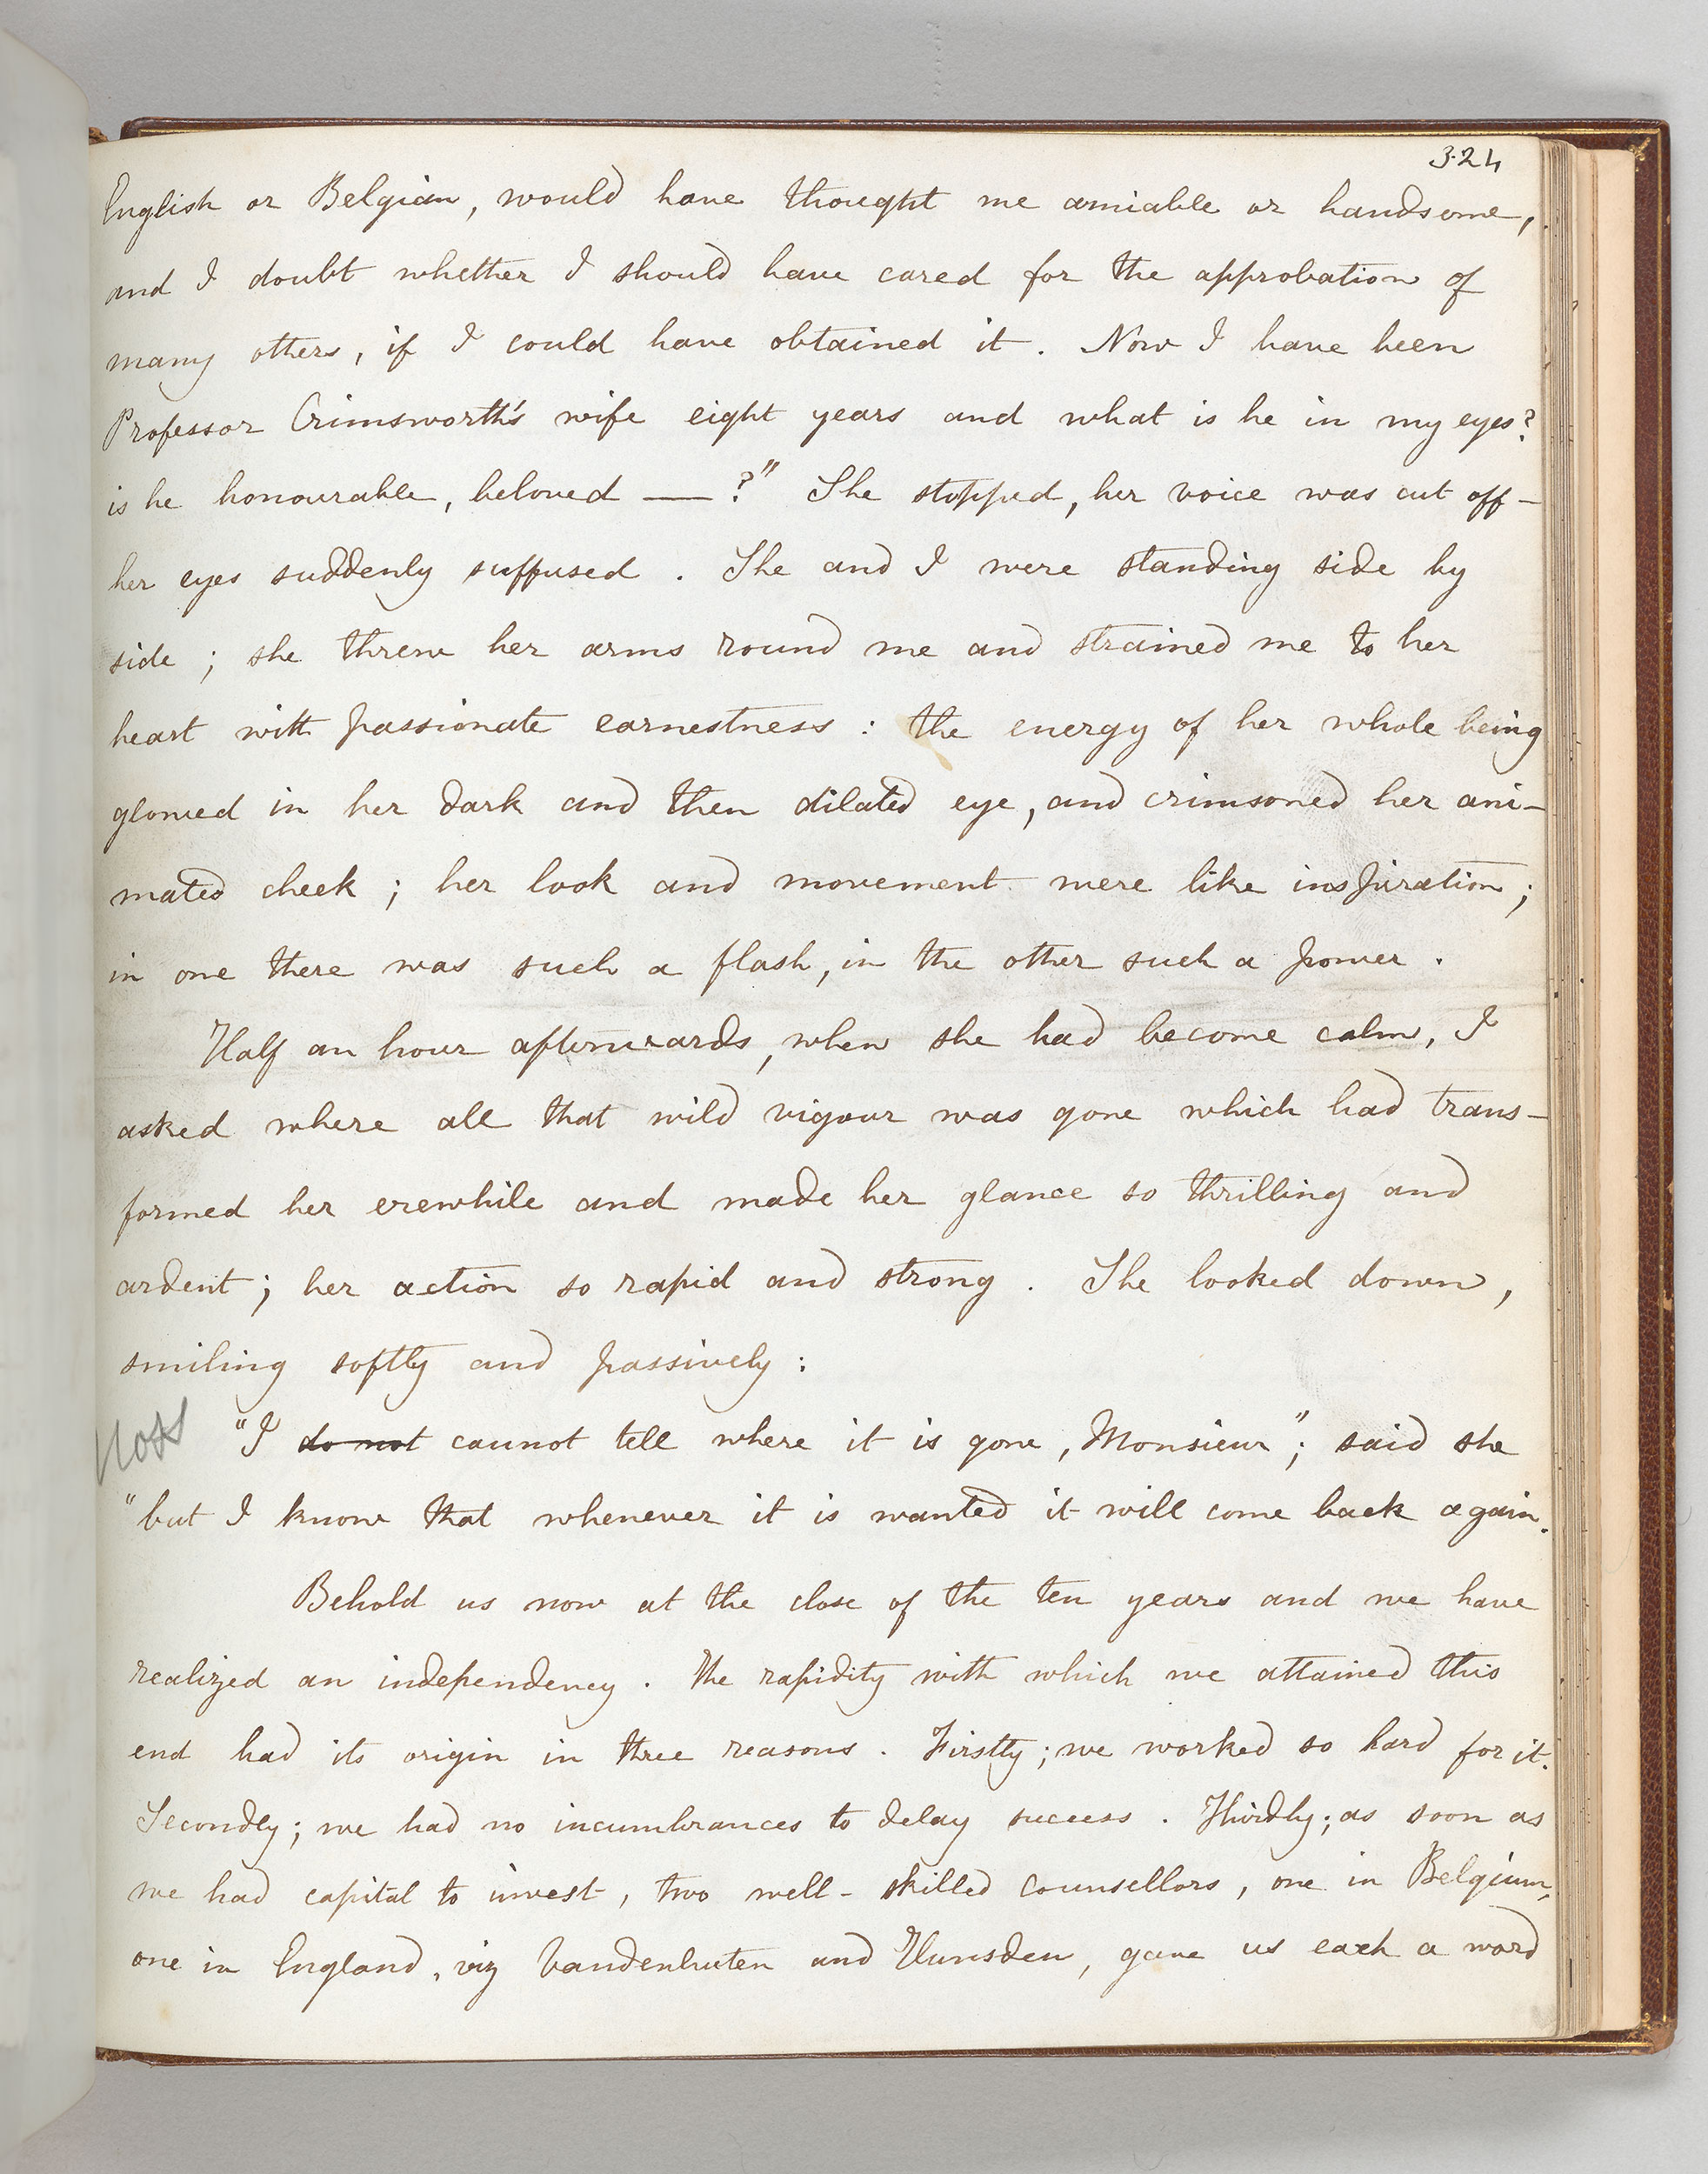 324
English or Belgian, would have thought me amiable or handsome,
and I doubt whether I should have cared for the approbation of
many others, if I could have obtained it. Now I have been
Professor Crimsworth's wife eight years and what is he in my eyes?
is he honourable, beloved — ?" She stopped, her voice was cut off –
her eyes suddenly suffused. She and I were standing side by
side; she threw her arms round me and strained me to her
heart with passionate earnestness: the energy of her whole being
glowed in her dark and then dilated eye, and crimsoned her ani-
mated cheek; her look and movement were like inspiration;
in one there was such a flash, in the other such a power.
Half an hour afterwards, when she had become calm, I
asked where all that wild vigour was gone which had trans-
formed her erewhile and made her glance so thrilling and
ardent; her action so rapid and strong. She looked down,
smiling softly and passively:
"I do not cannot tell where it is gone, Monsieur"; said she
"but I know that whenever it is wanted it will come back again.
Behold us now at the close of the ten years and we have
realized an independency. The rapidity with which we attained this
end had its origin in three reasons. Firstly; we worked so hard for it.
Secondly; we had no incumbrances to delay success. Thirdly; as soon as
we had capital to invest, two well-skilled counsellors, one in Belgium,
one in England, viz Vandenhuten and Hunsden, gave us each a word